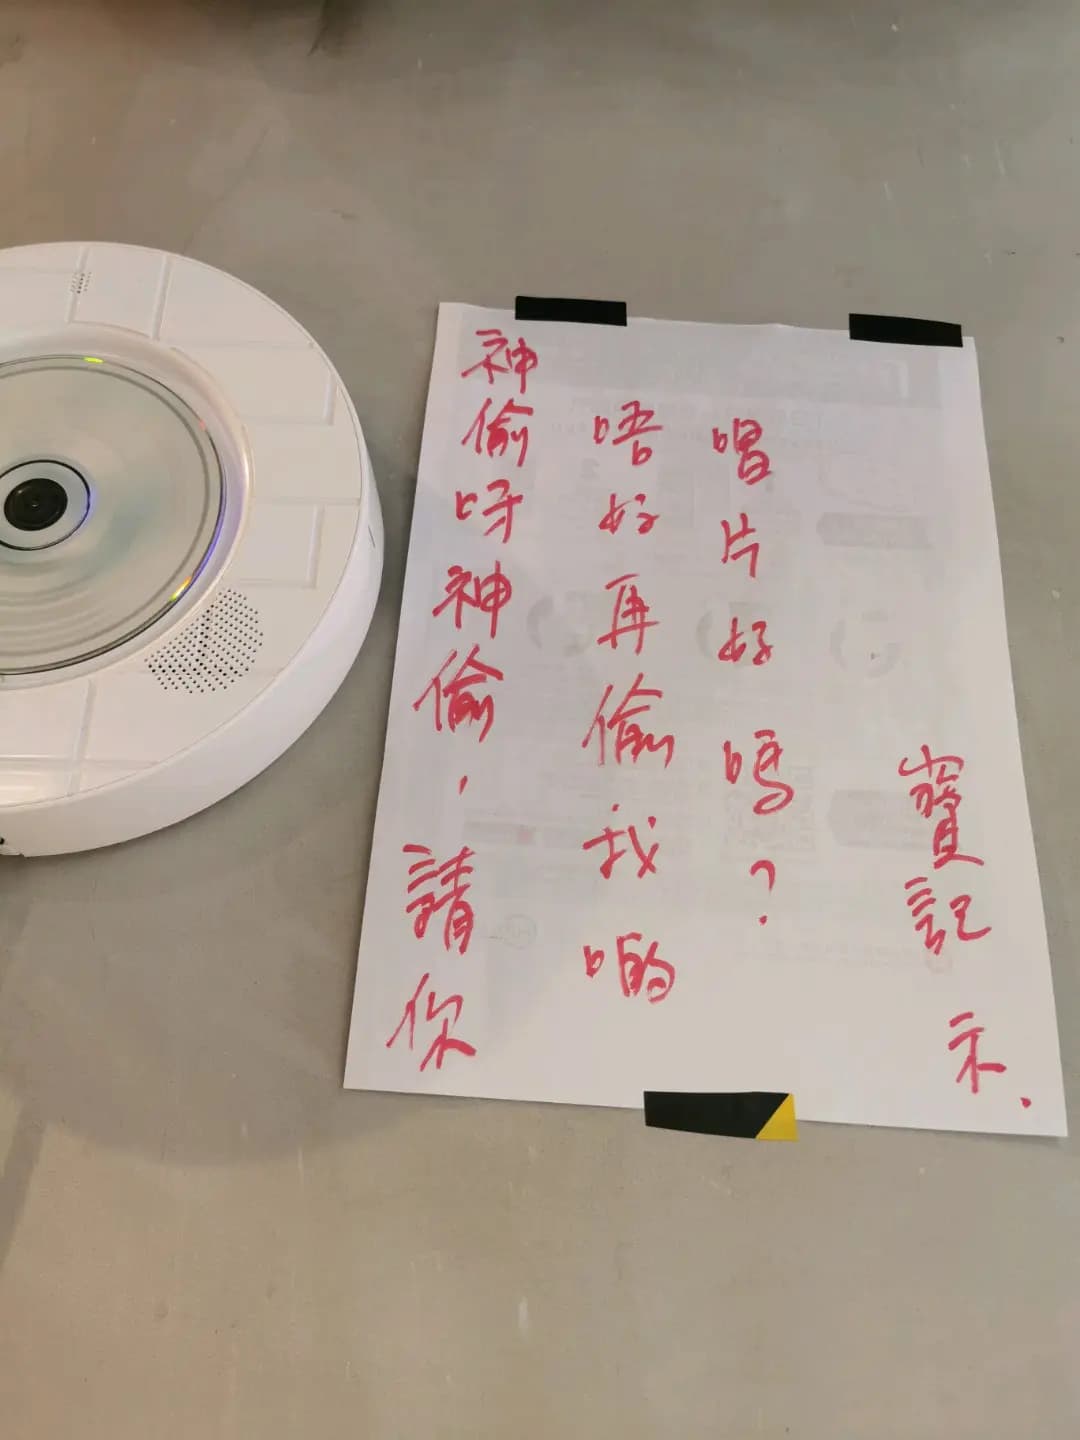 神偷呀神偷，請你
唔好再偷我啲
唱片好嗎？
寶記 示.